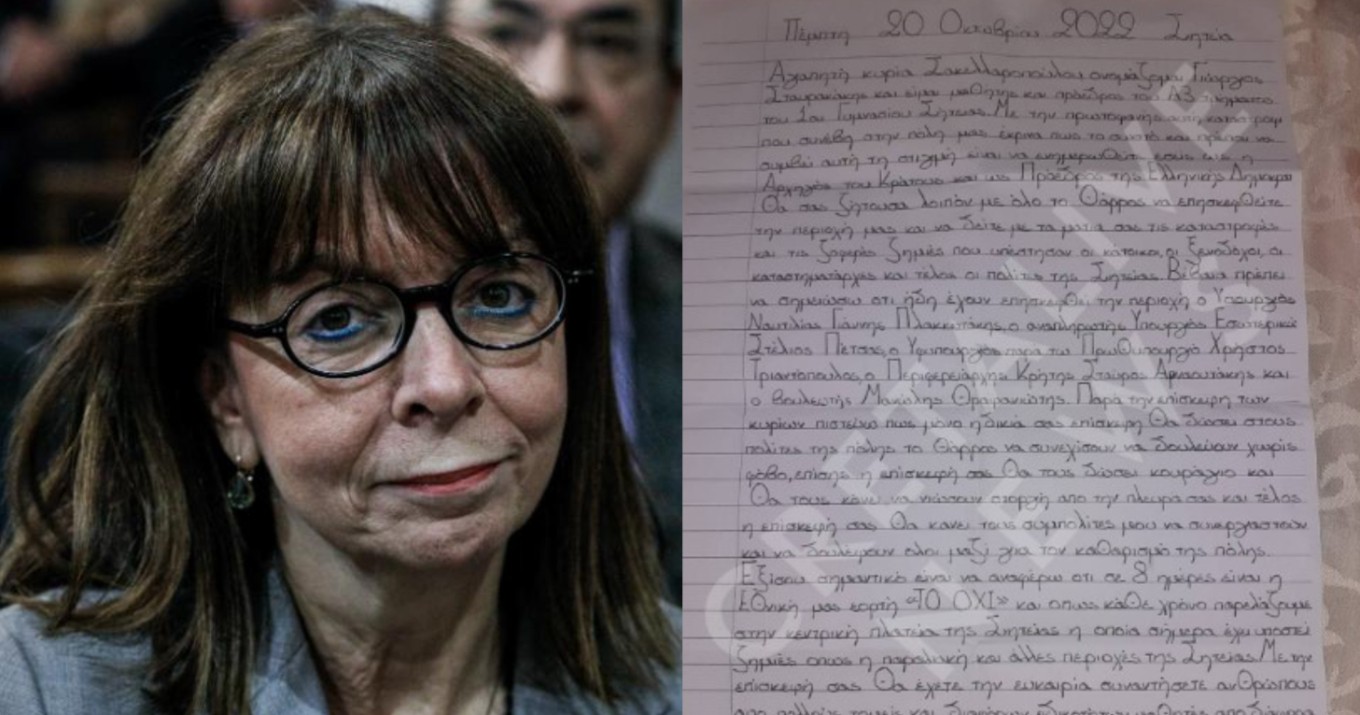 Πέμπτη 20 Οκτωβρίου 2022 Σητεία
Αγαπητή κυρία Σακελλαροπούλου ονομάζομαι Γιώργος
Σταυρακάκης και είμαι μαθητής και πρόεδρος του Α3 τμήματος
του 1ου Γυμνασίου Σητείας. Με την πρωτοφανής αυτή καταστροφή
που συνέβη στην πόλη μας έκρινα πως το σωστό και πρέπον να
συμβεί αυτή τη στιγμή είναι να ενημερωθείτε εσείς ως η
Αρχηγός του Κράτους και ως Πρόεδρος της Ελληνικής Δημοκρατ
Θα σας ζητούσα λοιπόν με όλο το Θάρρος να επησκεφθείτε
την περιοχή μας και να δείτε με τα ματια σας τις καταστροφές
και τις ζοφερές ζημιές που υπέστησαν οι κάτοικοι, οι ξενοδόχοι, οι
καταστηματάρχες και τέλος οι πολίτες της Σητείας. Βέβαια πρέπει
να σημειώσω οτι ήδη έχουν επησκεφθεί την περιοχή ο Υπουργός
Ναυτιλίας Γιάννης Πλακιωτάκης, ο αναπληρωτής Υπουργός Εσωτερικών
Στέλιος Πέτσας, ο Υφυπουργός παρα τω Πρωθυπουργό Χρήστος
Τριαντόπουλος, ο Περιφερειάρχης Κρήτης Σταύρος Αρναουτάκης και
ο βουλευτής Μανώλης Θραψανιώτης. Παρά την επίσκεψη των
κυρίων πιστεύω πως μόνο η δικιά σας επίσκεψη Θα δώσει στους
πολίτες της πόλης το Θάρρος να συνεχίσουν να δουλεύουν χωρίς
φόβο, επίσης η επίσκεψή σας Θα τους δώσει κουράγιο και
Θα τους κάνει να νιώσουν στοργή απο την πλευρα σας και τέλος
η επίσκεψή σας Θα κανει τους συμπολίτες μου να συνεργαστούν
και να δουλέψουν ολοι μαζί για τον καθαρισμό της πόλης.
Εξίσου σημαντικό είναι να αναφέρω οτι σε 8 ημέρες είναι η
Εθνική μας εορτή «ΤΟ ΟΧΙ» και οπως κάθε χρόνο παρελάζουμε
στην κεντρική πλατεία της Σητείας η οποία σήμερα έχει υποστεί
ζημιές οπως η παραλιακή και άλλες περιοχές της Σητείας. Με την
επίσκεψή σας Θα έχετε την ευκαιρία συναντήσετε ανθρώπους
απο πολλούς τομείς και
CRETALIVE
NEWS